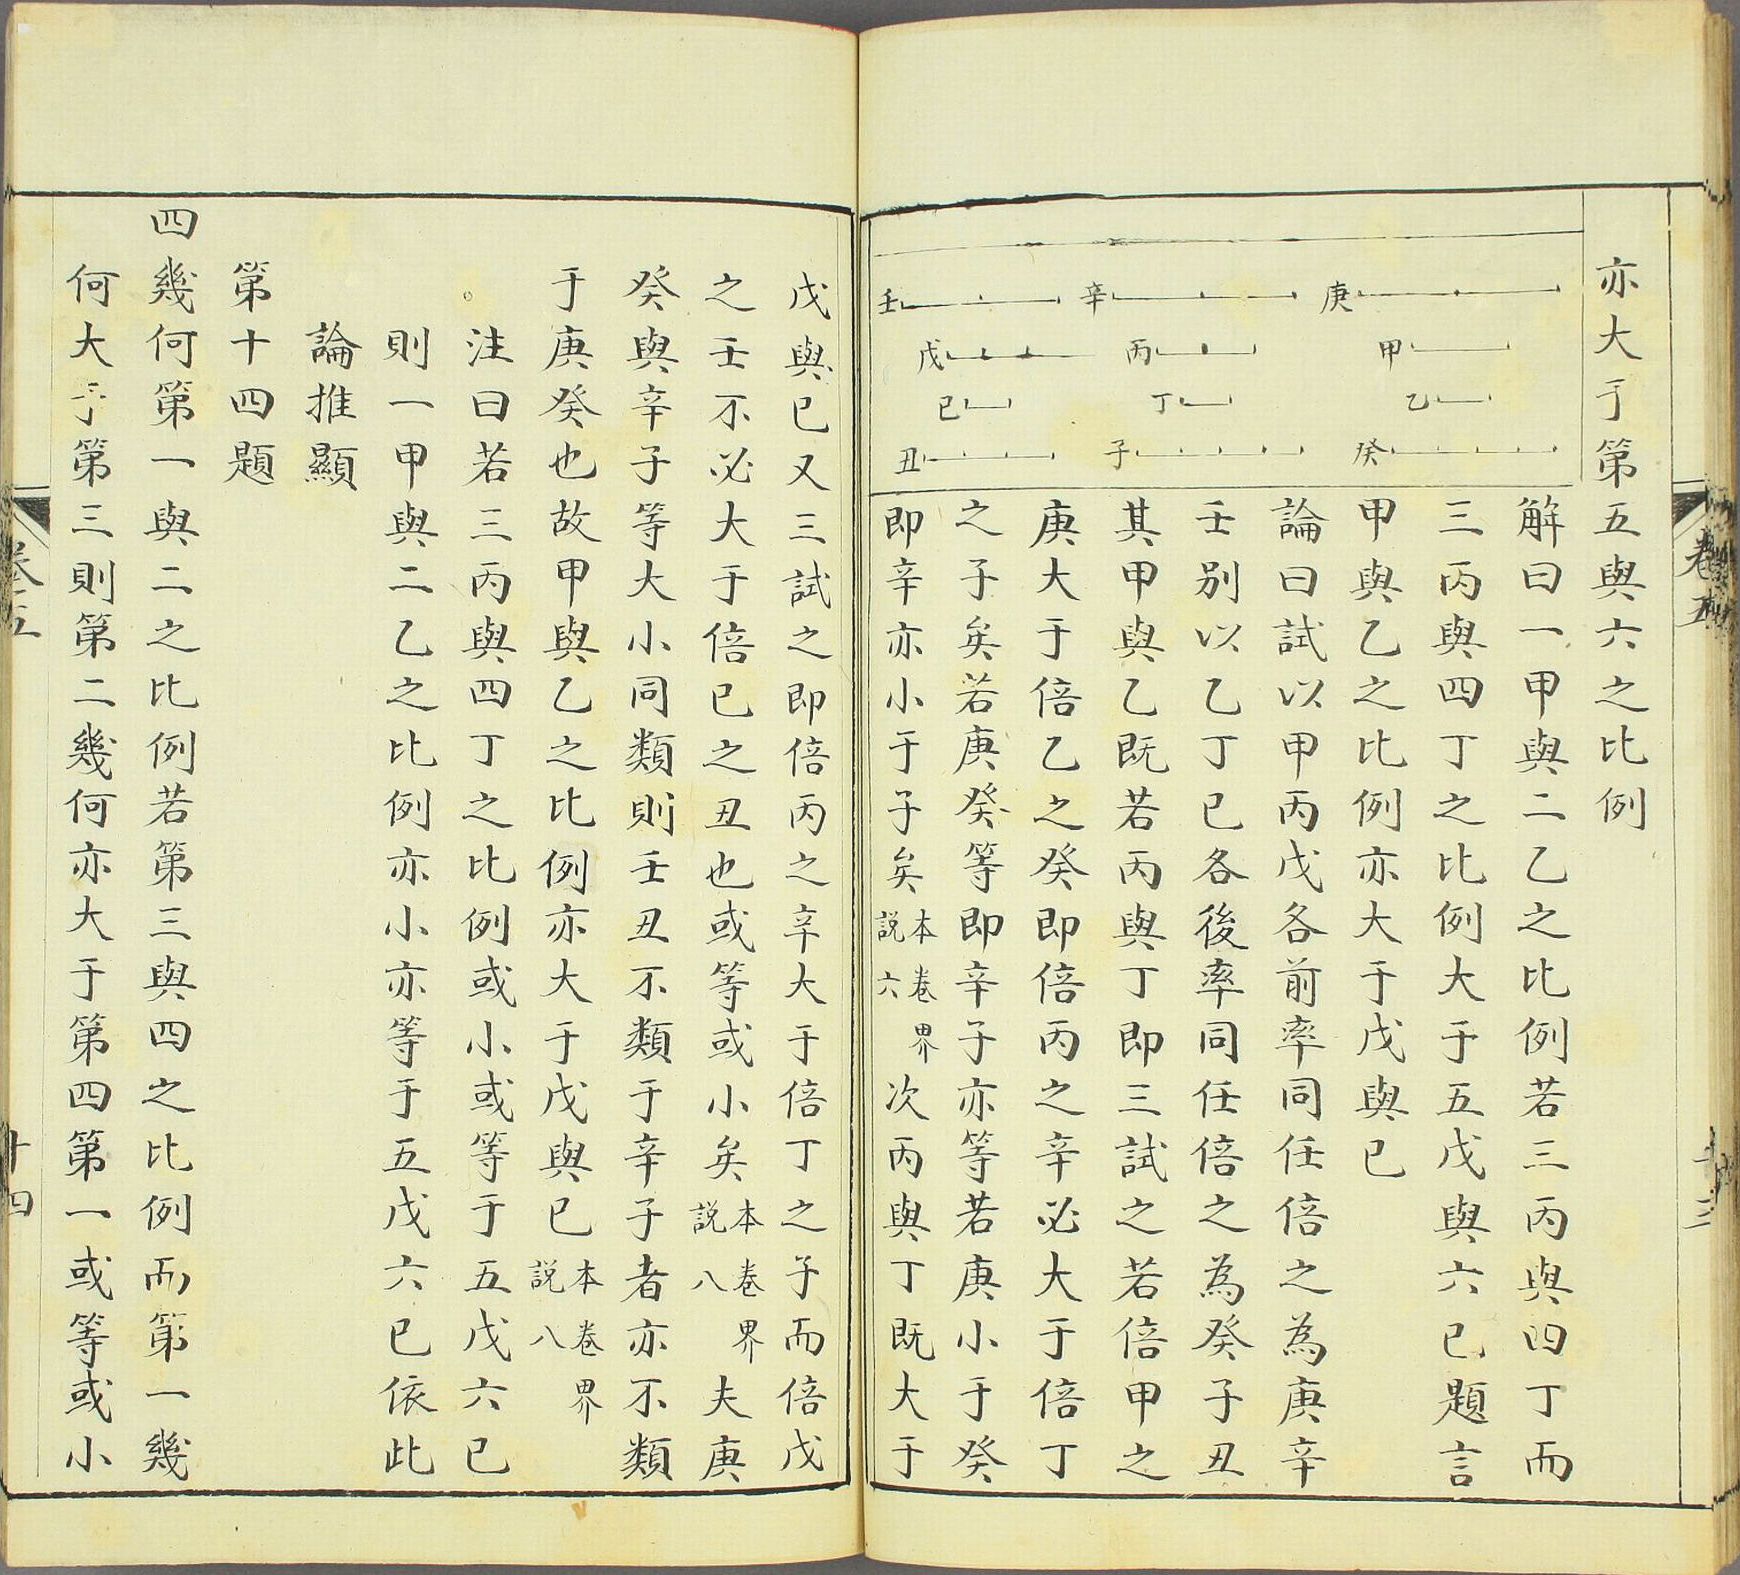 亦大于第五與六之比例
庚
辛
壬
甲
丙
戊
乙
丁
己
癸
子
丑
解曰一甲與二乙之比例若三丙與四丁而
三丙與四丁之比例大于五戊與六己題言
甲與乙之比例亦大于戊與己
論曰試以甲丙戊各前率同任倍之為庚辛
壬別以乙丁己各後率同任倍之為癸子丑
其甲與乙既若丙與丁即三試之若倍甲之
庚大于倍乙之癸即倍丙之辛必大于倍丁
之子矣若庚癸等即辛子亦等若庚小于癸
即辛亦小于子矣本卷界說六次丙與丁既大于
戊與己又三試之即倍丙之辛大于倍丁之子而倍戊
之壬不必大于倍己之丑也或等或小矣本卷界說八夫庚
癸與辛子等大小同類則壬丑不類于辛子者亦不類
于庚癸也故甲與乙之比例亦大于戊與己本卷界說八
注曰若三丙與四丁之比例或小或等于五戊六己
則一甲與二乙之比例亦小亦等于五戊六己依此
論推顯
第十四題
四幾何第一與二之比例若第三與四之比例而第一幾
何大于第三則第二幾何亦大于第四第一或等或小
卷五
十三
卷五
十四